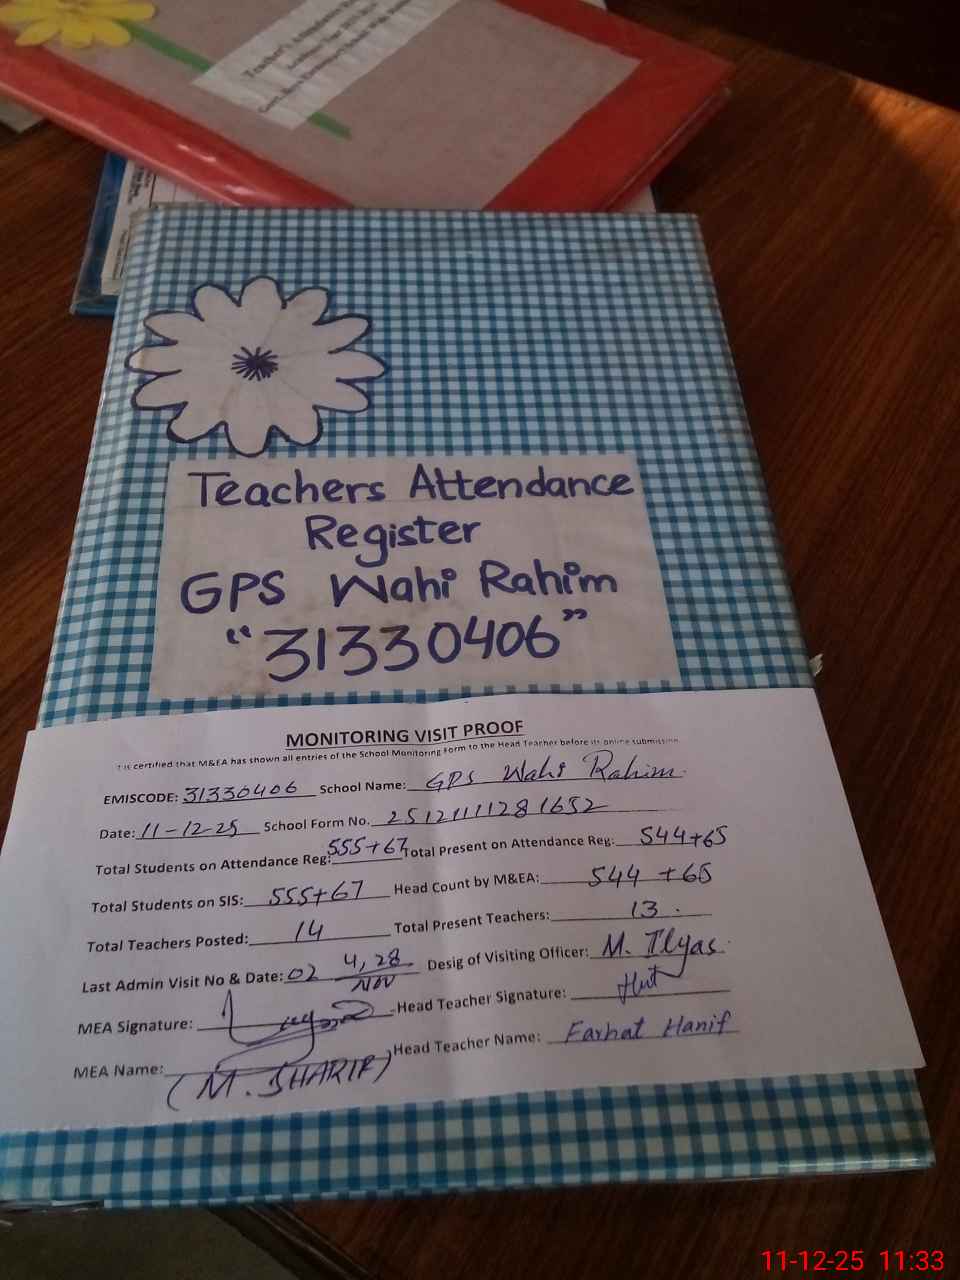 Teacher's
Teachers Attendance
Register
GPS Wahi Rahim
"31330406"
MONITORING VISIT PROOF
is certified that M&EA has shown all entries of the School Monitoring Form to the Head Teacher before its online submission
EMISCODE: 31330406 School Name: GPS Wahi Rahim
Date: 11-12-25 School Form No. 25121111281652
Total Students on Attendance Reg: 555+67 Total Present on Attendance Reg: 544+65
Total Students on SIS: 555+67 Head Count by M&EA: 544 +65
Total Teachers Posted: 14 Total Present Teachers: 13
Last Admin Visit No & Date: 02 4, 28 Nov Desig of Visiting Officer: M. Ilyas
MEA Signature: Head Teacher Signature:
MEA Name: (M. SHARIF) Head Teacher Name: Farhat Hanif
11-12-25 11:33